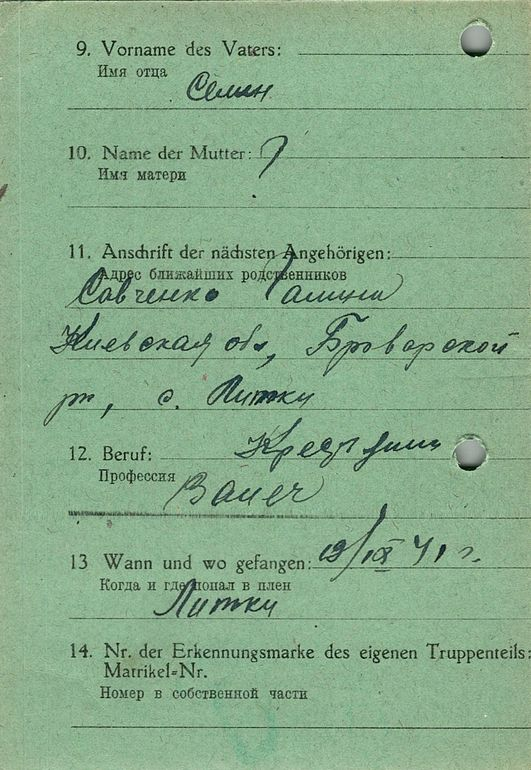 9. Vorname des Vaters:
Имя отца
Семен
10. Name der Mutter: ?
Имя матери
11. Anschrift der nächsten Angehörigen:
Адрес ближайших родственников
Савченко Галина
Киевская обл, Броварской
рн, с. Литки
12. Beruf:
Профессия
13 Wann und wo gefangen: 19/IX 41 г.
Когда и где попал в плен
Литки
14. Nr. der Erkennungsmarke des eigenen Truppenteils:
Matrikel-Nr.
Номер в собственной части